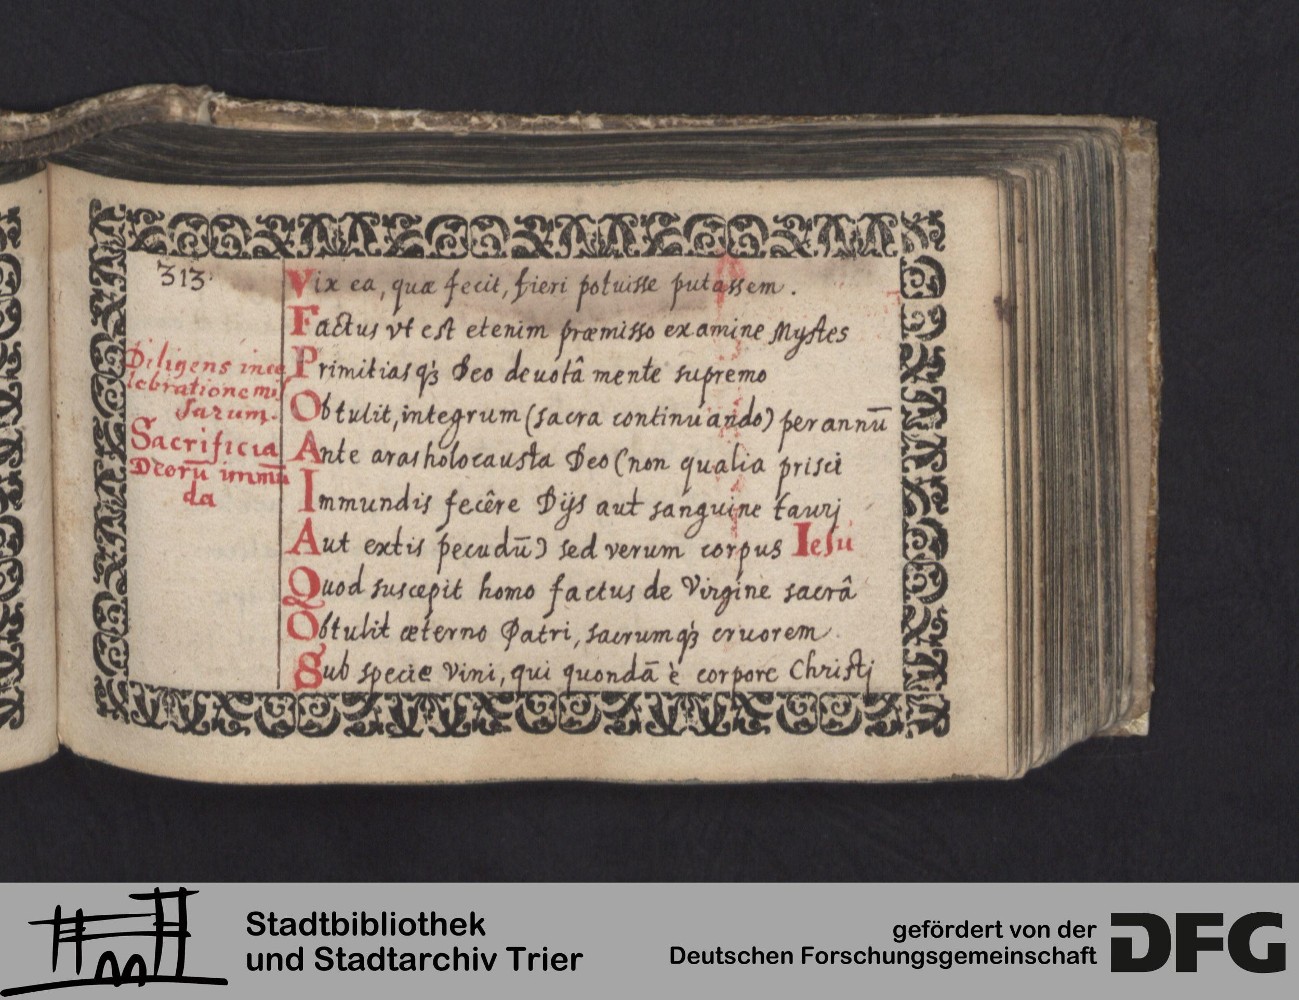 313
Diligens in ce
lebratione mis
sarum.
Sacrificia
Deorū immū
da
Vix ea, quæ fecit, fieri potuisse putassem.
Factus vt est etenim præmisso examine Mystes
Primitiasqꝫ Deo deuotâ mente supremo
Obtulit, integrum (sacra continuando) per annū
Ante aras holocausta Deo (non qualia prisci
Immundis fecêre Dijs aut sanguine taurj
Aut extis pecudū) sed verum corpus Iesu
Quod suscepit homo factus de Virgine sacrâ
Obtulit æterno Patri, sacrumqꝫ cruorem
Sub specie Vini, qui quondā è corpore Christj
Stadtbibliothek
und Stadtarchiv Trier
gefördert von der
Deutschen Forschungsgemeinschaft
DFG